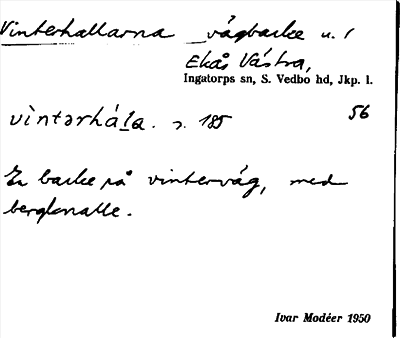 Vinterhallarna vägbacke u. 1
Ekås Västra,
Ingatorps sn, S. Vedbo hd, Jkp. l.
vìntərháḷa. s. 185 56
En backe på vinterväg, med
bergknalle.
Ivar Modéer 1950